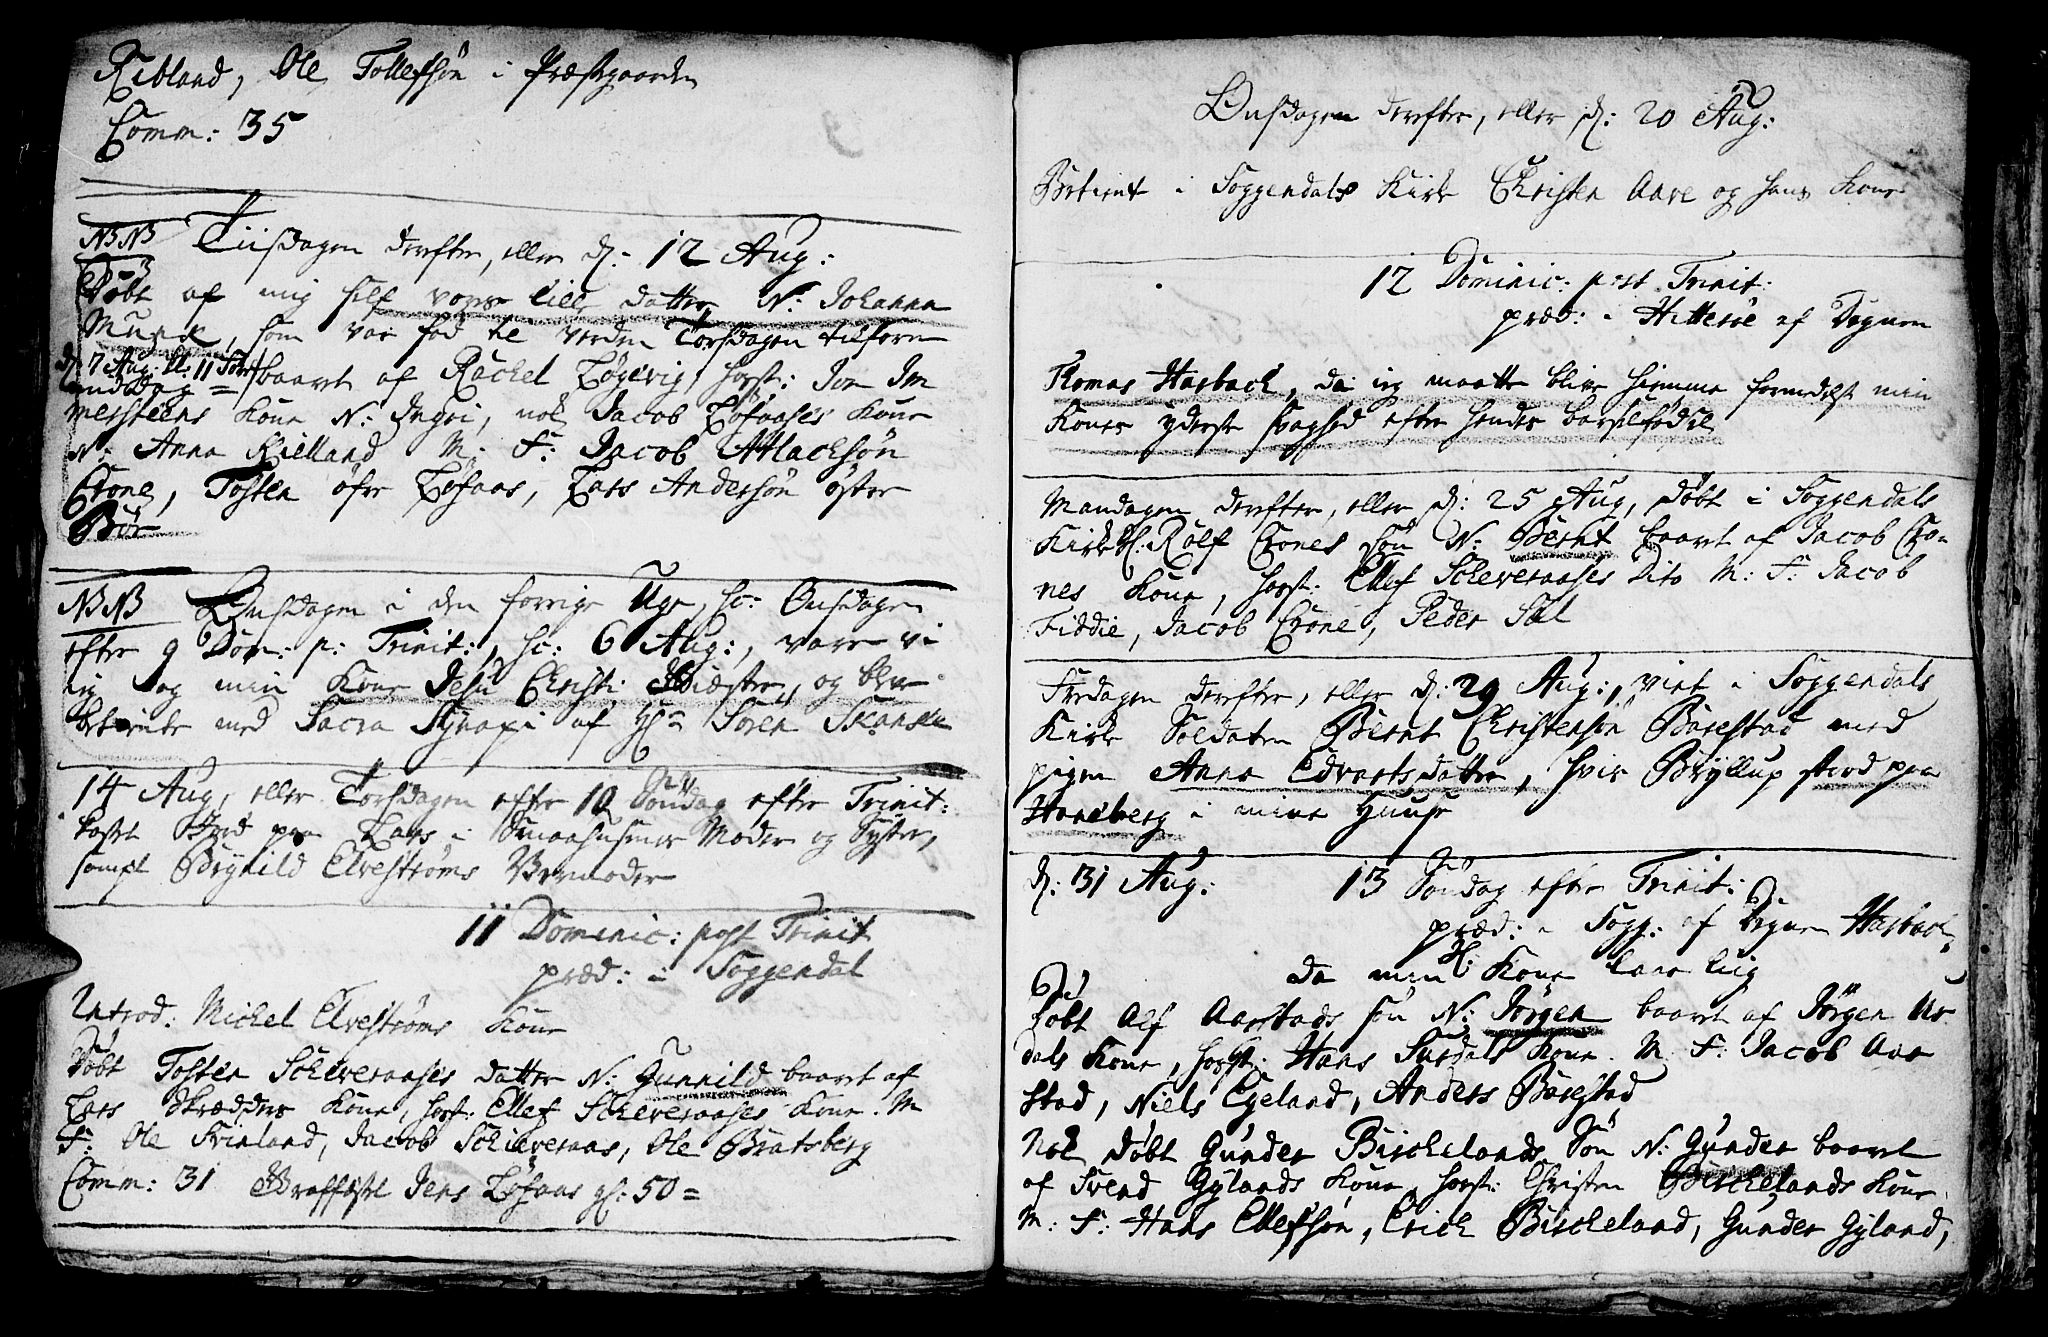 Ribland, Ole Tollefsön i Præstgaarden
Comm: 35
NB NB Tiisdagen derefter, eller d: 12 Aug:
Döbt af mig self vores lille datter N: Johanna
Munck, som var fød til verden Torsdagen tilforn
d: 7 Aug: kl: 11 Form
middag = baaret af Rachel Løgevig, horst: Jon Im
mersteens Kone N: Ingri, nok Jacob Løfaases Kone
N: Anna Kielland M: F: Jacob Atlacksön
Crone, Tosten öfre Løfaas, Lars Andersön öster
Bör
NB NB Onsdagen i den forrige Uge, sc: Onsdagen
efter 9 Dom: p: Trinit:, sc: 6 Aug:, vare vi
ieg og min Kone Jesu Christi Giæster, og blev
betiente med Sacra Synaxi af Hr Sören
14 Aug, eller Torsdagen efter 10 Söndag efter Trinit:
kastet Jord paa Lars i Smaahusenes Moder og Syster,
sampt Brynild Elveströms Vermoder
11 Dominic: post Trinit
præd: i Soggendal
Introd: Michel Elveströms Kone
Döbt Tosten Scheveraases datter N: Gunnild baaret af
Lars Skrædders Kone, horst: Ellef Scheveraases Kone. M
F: Ole Frinland, Jacob Schieveraas, Ole Bratsberg
Comm: 31 Jens Løfaas gl: 50 =
Onsdagen derefter, eller d: 20 Aug:
Betient i Soggendals Kirke Christen Aare og hans Kone
12 Dominic: post Trinit:
præd: i Hitterøe af Degnen
Thomas Hasbach, da ieg maatte blive hiemme formedelst min
Kones yderste svaghed efter hendes barselfødsel
Mandagen derefter, eller d: 25 Aug, døbt i Soggendals
Kirke Hl: Rolf Crones sön N: Bernt baaret af Jacob Cro=
nes Kone, horst: Ellef Scheveraases dito M: F: Jacob
Fiddie, Jacob Crone, Peder Sæl
Fredagen derefter, eller d: 29 Aug:, viet i Soggendals
Kirke Soldaten Bernt Christensön Barestad med
pigen Anna Edvartsdatter, hvis Bryllup stoed paa
Haneberg i mine Huuse
d: 31 Aug: 13 Söndag efter Trinit:
præd: i Sogg: af Degnen Hasbach,
da min Kl: Kone laae liig
Döbt Alf Aarstads sön N: Jörgen baaret af Jörgen Ur
dals Kone, horst: Hans Surdals Kone. M: F: Jacob Aar
stad, Niels Egeland, Anders Barestad
Nok döbt Gunder Birchelands Sön N: Gunder baaret
af Svend Gylands Kone, horst: Christen Birchelands Kone.
M: F: Hans Ellefsön, Erich Bircheland, Gunder Gyland,